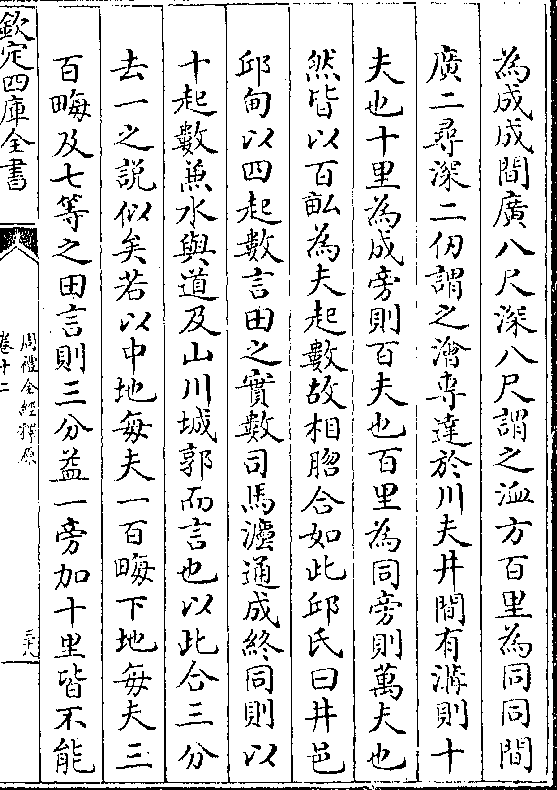 為成成間廣八尺深八尺謂之洫方百里為同同間
廣二尋深二仞謂之澮専達於川夫井間有溝則十
夫也十里為成旁則百夫也百里為同旁則萬夫也
然皆以百畝為夫起數故相脗合如此邱氏曰井邑
邱甸以四起數言田之實數司馬灋通成終同則以
十起數兼水與道及山川城郭而言也以此合三分
去一之說似矣若以中地每夫一百畮下地每夫三
百畮及七等之田言則三分益一旁加十里皆不能
欽定四庫全書
周禮全經釋原
卷十二